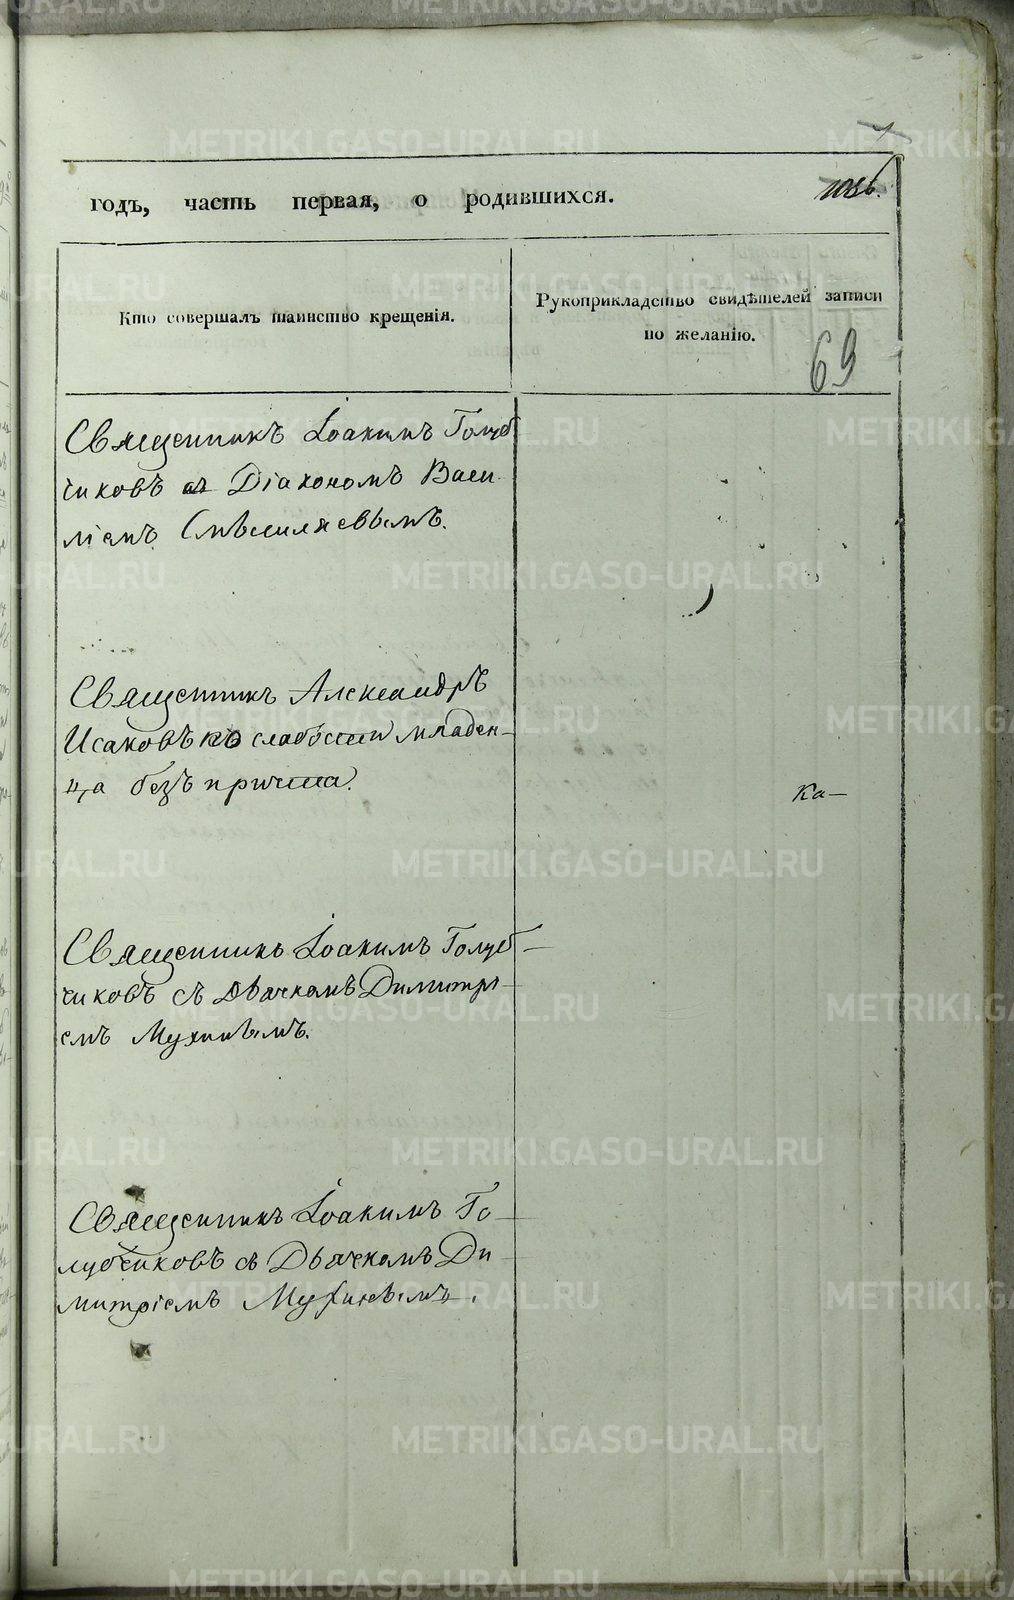 METRIKI.GASO-URAL.RU
годъ, часть первая, о родившихся.
Кто совершалъ таинство крещенія.
Рукоприкладство свидѣтелей записи
по желанію.
69
Священникъ Іоакимъ Голуб
чиковъ съ Діакономъ Васи
ліемъ
Священникъ Александръ
Исаковъ по слабости младен-
ца безъ причта.
Ка-
Священникъ Іоакимъ Голуб-
чиковъ съ Дьячкомъ Димитрі-
емъ Мухинымъ.
Священникъ Іоакимъ Го-
лубчиковъ съ Дьячкомъ Ди-
митріемъ Мухинымъ.